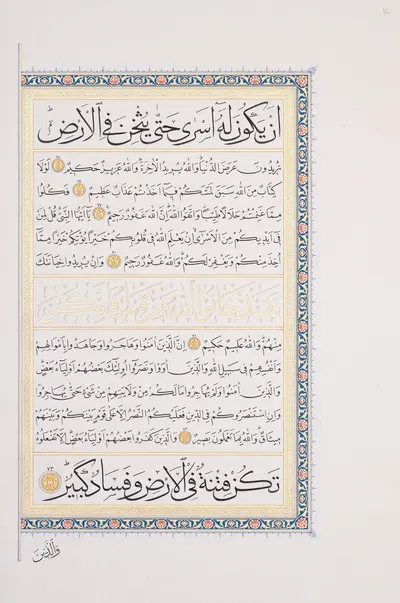 اَنْ يَكُونَ لَهُٓ اَسْرٰى حَتّٰى يُثْخِنَ فِي الْاَرْضِۜ
تُرِيدُونَ عَرَضَ الدُّنْيَاۗ وَاللّٰهُ يُرِيدُ الْاٰخِرَةَۜ وَاللّٰهُ عَزِيزٌ حَكِيمٌ لَوْلَا
كِتَابٌ مِنَ اللّٰهِ سَبَقَ لَمَسَّكُمْ فِيمَٓا اَخَذْتُمْ عَذَابٌ عَظِيمٌ فَكُلُوا
مِمَّا غَنِمْتُمْ حَلَالًا طَيِّبًاۘ وَاتَّقُوا اللّٰهَۜ اِنَّ اللّٰهَ غَفُورٌ رَحِيمٌ يَٓا اَيُّهَا النَّبِيُّ قُلْ لِمَنْ
فِٓي اَيْدِيكُمْ مِنَ الْاَسْرٰٓىۙ اِنْ يَعْلَمِ اللّٰهُ فِي قُلُوبِكُمْ خَيْرًا يُؤْتِكُمْ خَيْرًا مِمَّٓا
اُخِذَ مِنْكُمْ وَيَغْفِرْ لَكُمْۜ وَاللّٰهُ غَفُورٌ رَحِيمٌ وَاِنْ يُرِيدُوا خِيَانَتَكَ
فَقَدْ خَانُوا اللّٰهَ مِنْ قَبْلُ فَاَمْكَنَ
مِنْهُمْۜ وَاللّٰهُ عَلِيمٌ حَكِيمٌ اِنَّ الَّذِينَ اٰمَنُوا وَهَاجَرُوا وَجَاهَدُوا بِاَمْوَالِهِمْ
وَاَنْفُسِهِمْ فِي سَبِيلِ اللّٰهِ وَالَّذِينَ اٰوَوْا وَنَصَرُٓوا اُو۬لٰٓئِكَ بَعْضُهُمْ اَوْلِيَٓاءُ بَعْضٍۜ
وَالَّذِينَ اٰمَنُوا وَلَمْ يُهَاجِرُوا مَا لَكُمْ مِنْ وَلَايَتِهِمْ مِنْ شَيْءٍ حَتّٰى يُهَاجِرُواۚ
وَاِنِ اسْتَنْصَرُوكُمْ فِي الدِّينِ فَعَلَيْكُمُ النَّصْرُ اِلَّا عَلٰى قَوْمٍ بَيْنَكُمْ وَبَيْنَهُمْ
مِيثَاقٌۜ وَاللّٰهُ بِمَا تَعْمَلُونَ بَصِيرٌ وَالَّذِينَ كَفَرُوا بَعْضُهُمْ اَوْلِيَٓاءُ بَعْضٍۜ اِلَّا تَفْعَلُوهُ
تَكُنْ فِتْنَةٌ فِي الْاَرْضِ وَفَسَادٌ كَبِيرٌۜ ٧٣
وَالَّذِينَ